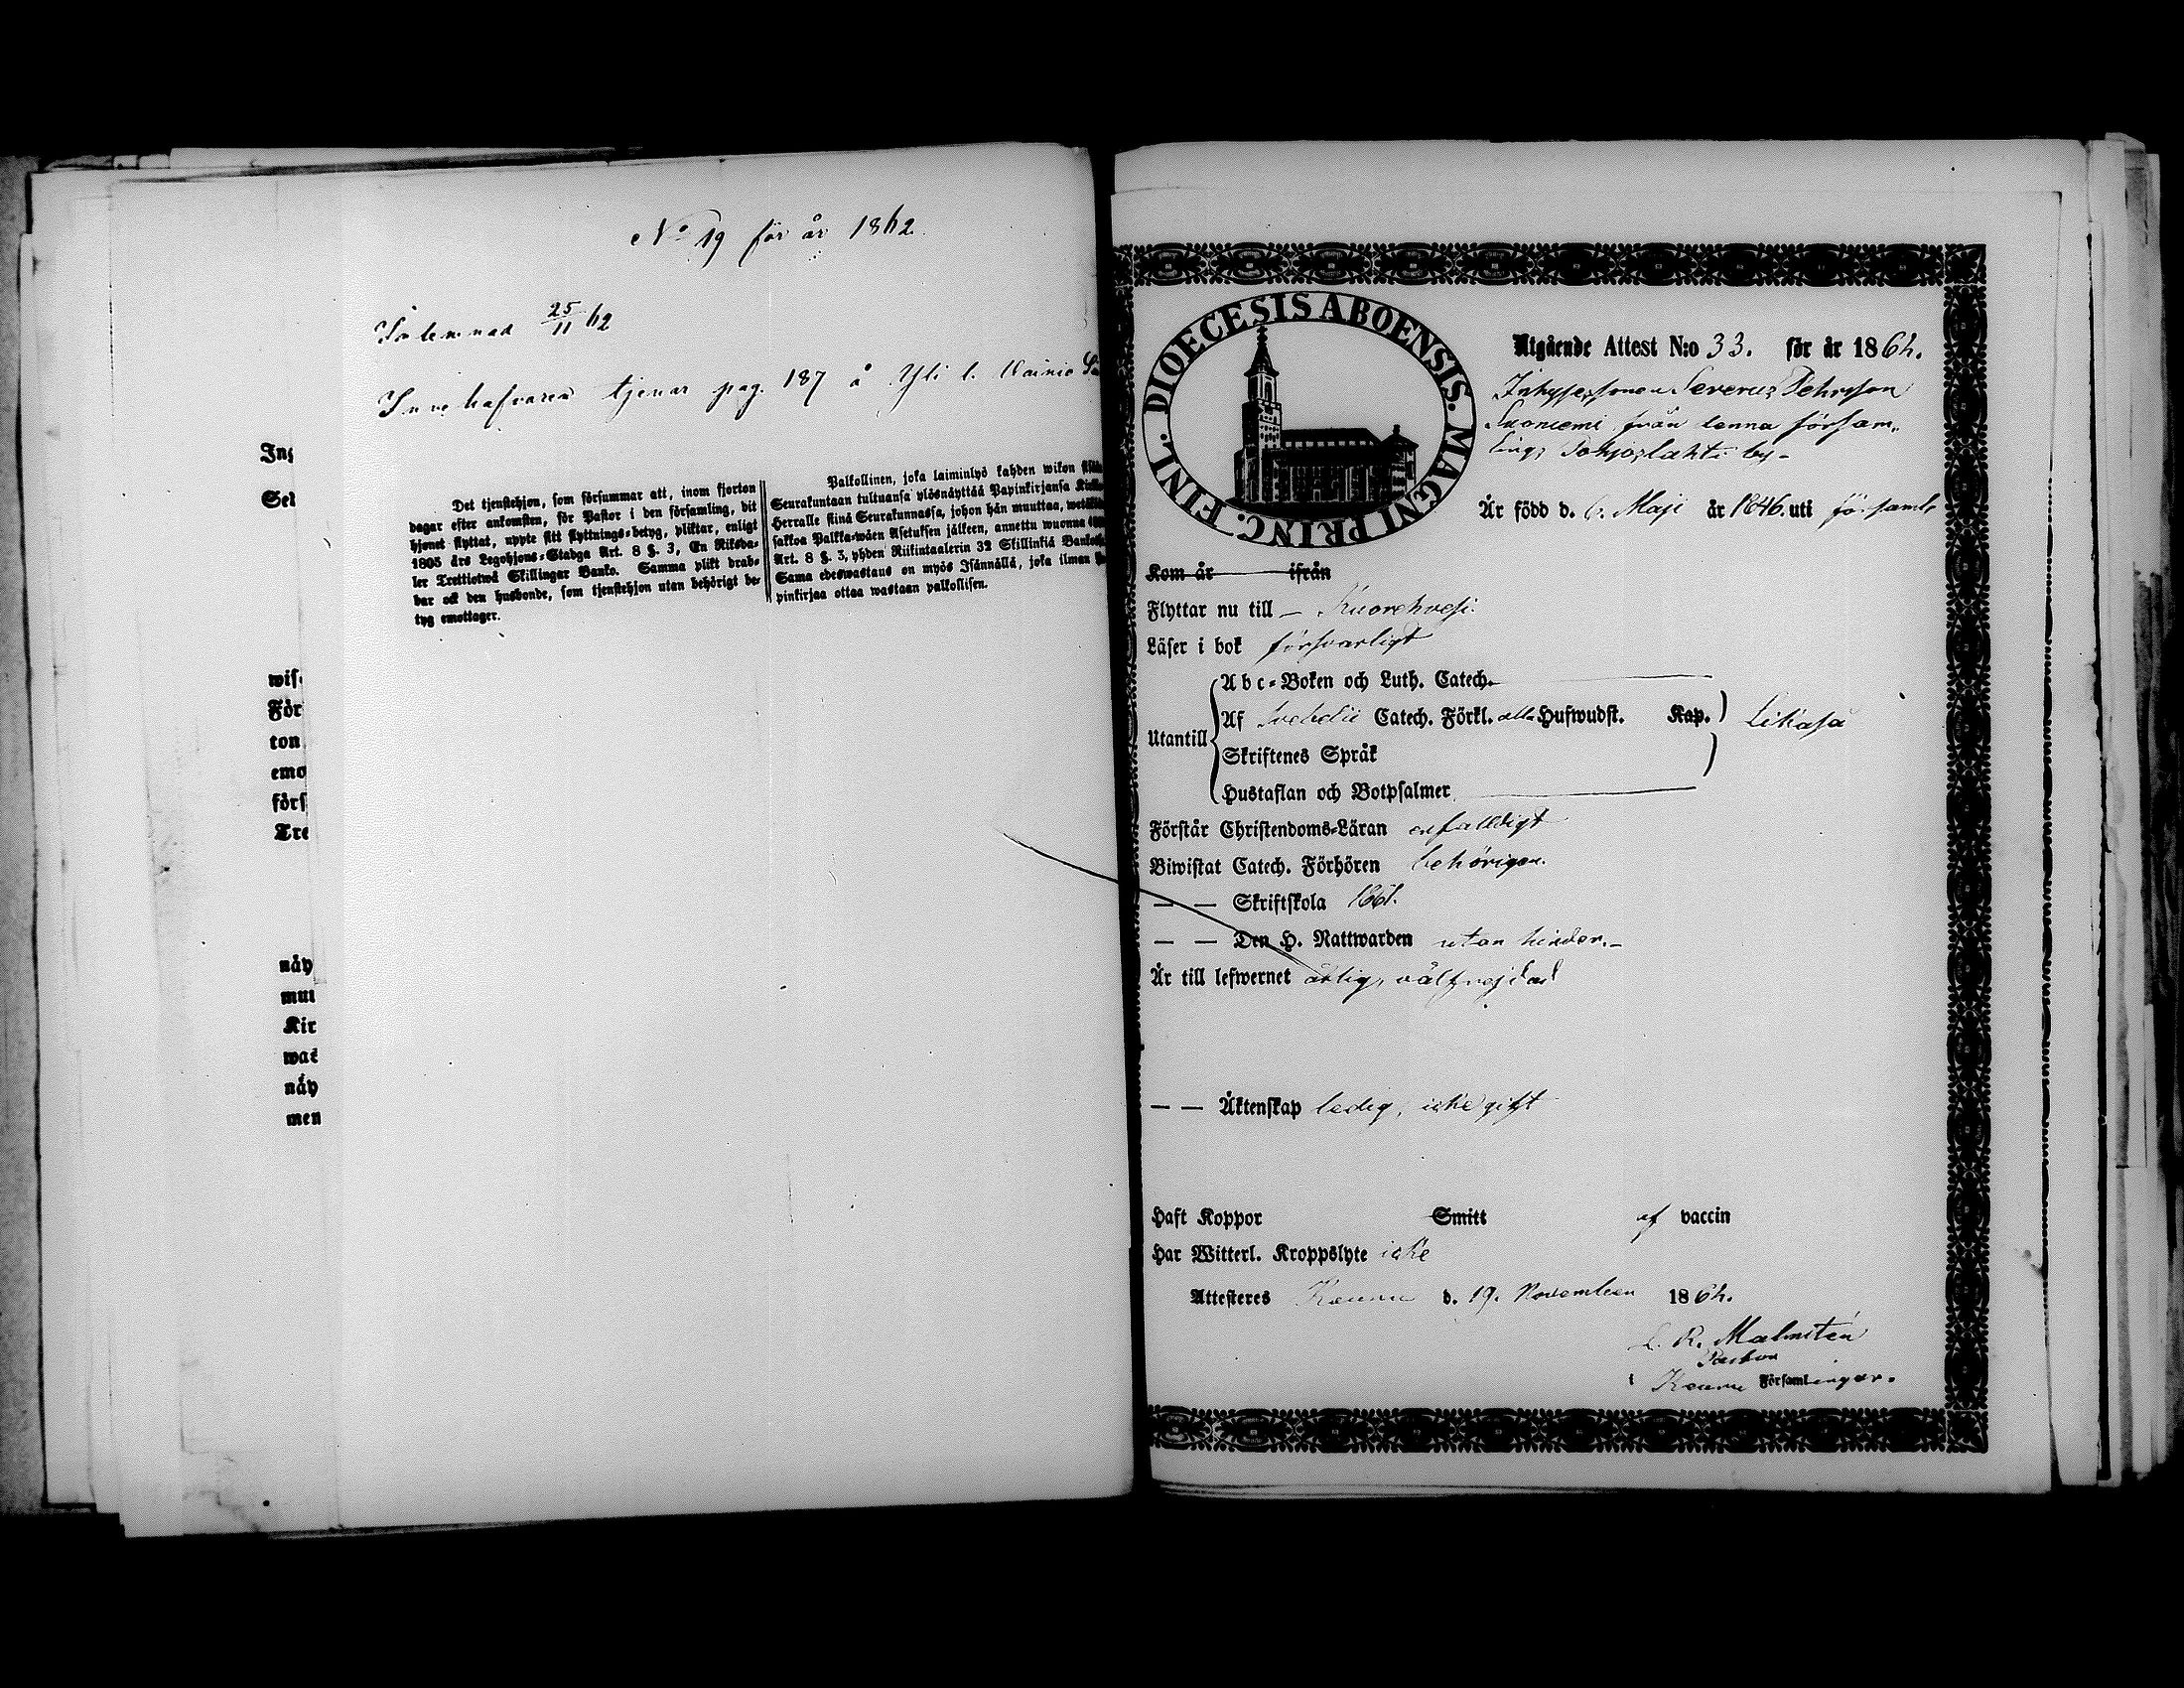 No 19 för år 1862.
Inlemnad 25/11 62
Innehafvaren tjenar pag. 187 å Yli l. Wainio
Ins
Sei
Det tjenstehjon, som försummar att, inom fjorton
dagar efter ankomsten, för Pastor i den församling, dit
hjonet flyttat, uppte sitt flyttnings-betyg, pliktar, enligt
1805 års Legohjons-Stadga Art. 8 §. 3, En Riksda-
ler Trettiotwå Skillingar Banko. Samma plikt drab-
bar ock den husbonde, som tjenstehjon utan behörigt be-
tyg emottager.
Palkollinen, joka laiminlyö kahden wikon
Seurakuntaan tultuansa ylösnäyttää Papinkirjansa
Herralle siinä Seurakunnassa, johon hän muuttaa,
sakkoa Palkka-wäen Asetuksen jälkeen, annettu wuonna
Art. 8 §. 3, yhden Riikintaalerin 32 Skillinkiä
Sama edeswastaus on myös Isännällä, joka ilman
pinkirjaa ottaa wastaan palkollisen.
wis
För
ton
emo
förs
Tre
näy
muu
Kir
wae
näy
men
DIOECESIS ABOENSIS. MAGNI PRINC. FINL.
Utgående Attest N:o 33. för år 1864.
Inhysessonen Severus Pehrsson
Suoniemi från denna församl-
ing, Pohjoslahti by-
Är född d. 6. Maji år 1846. uti församl.
Kom år ifrån
Flyttar nu till — Kuorehvesi.
Läser i bok försvarligt
Utantill
Abc-Boken och Luth. Catech.
Af Svebelii Catech. Förkl. alla Hufwudst. Kap. Likaså
Skriftenes Språk
Hustaflan och Botpsalmer
Förstår Christendoms-Läran enfalldigt
Biwistat Catech. Förhören behörigen.
— — Skriftskola 1861.
— — Den H. Nattwarden utan hinder.-
Är till lefwernet ärlig, välfrejdad
— — Äktenskap ledig, icke gift
Haft Koppor Smitt af vaccin
Har Witterl. Kroppslyte icke
Attesteres Keuru d. 19. November 1864.
L. R. Malmstén
Pastor
i Keuru Församlingar.